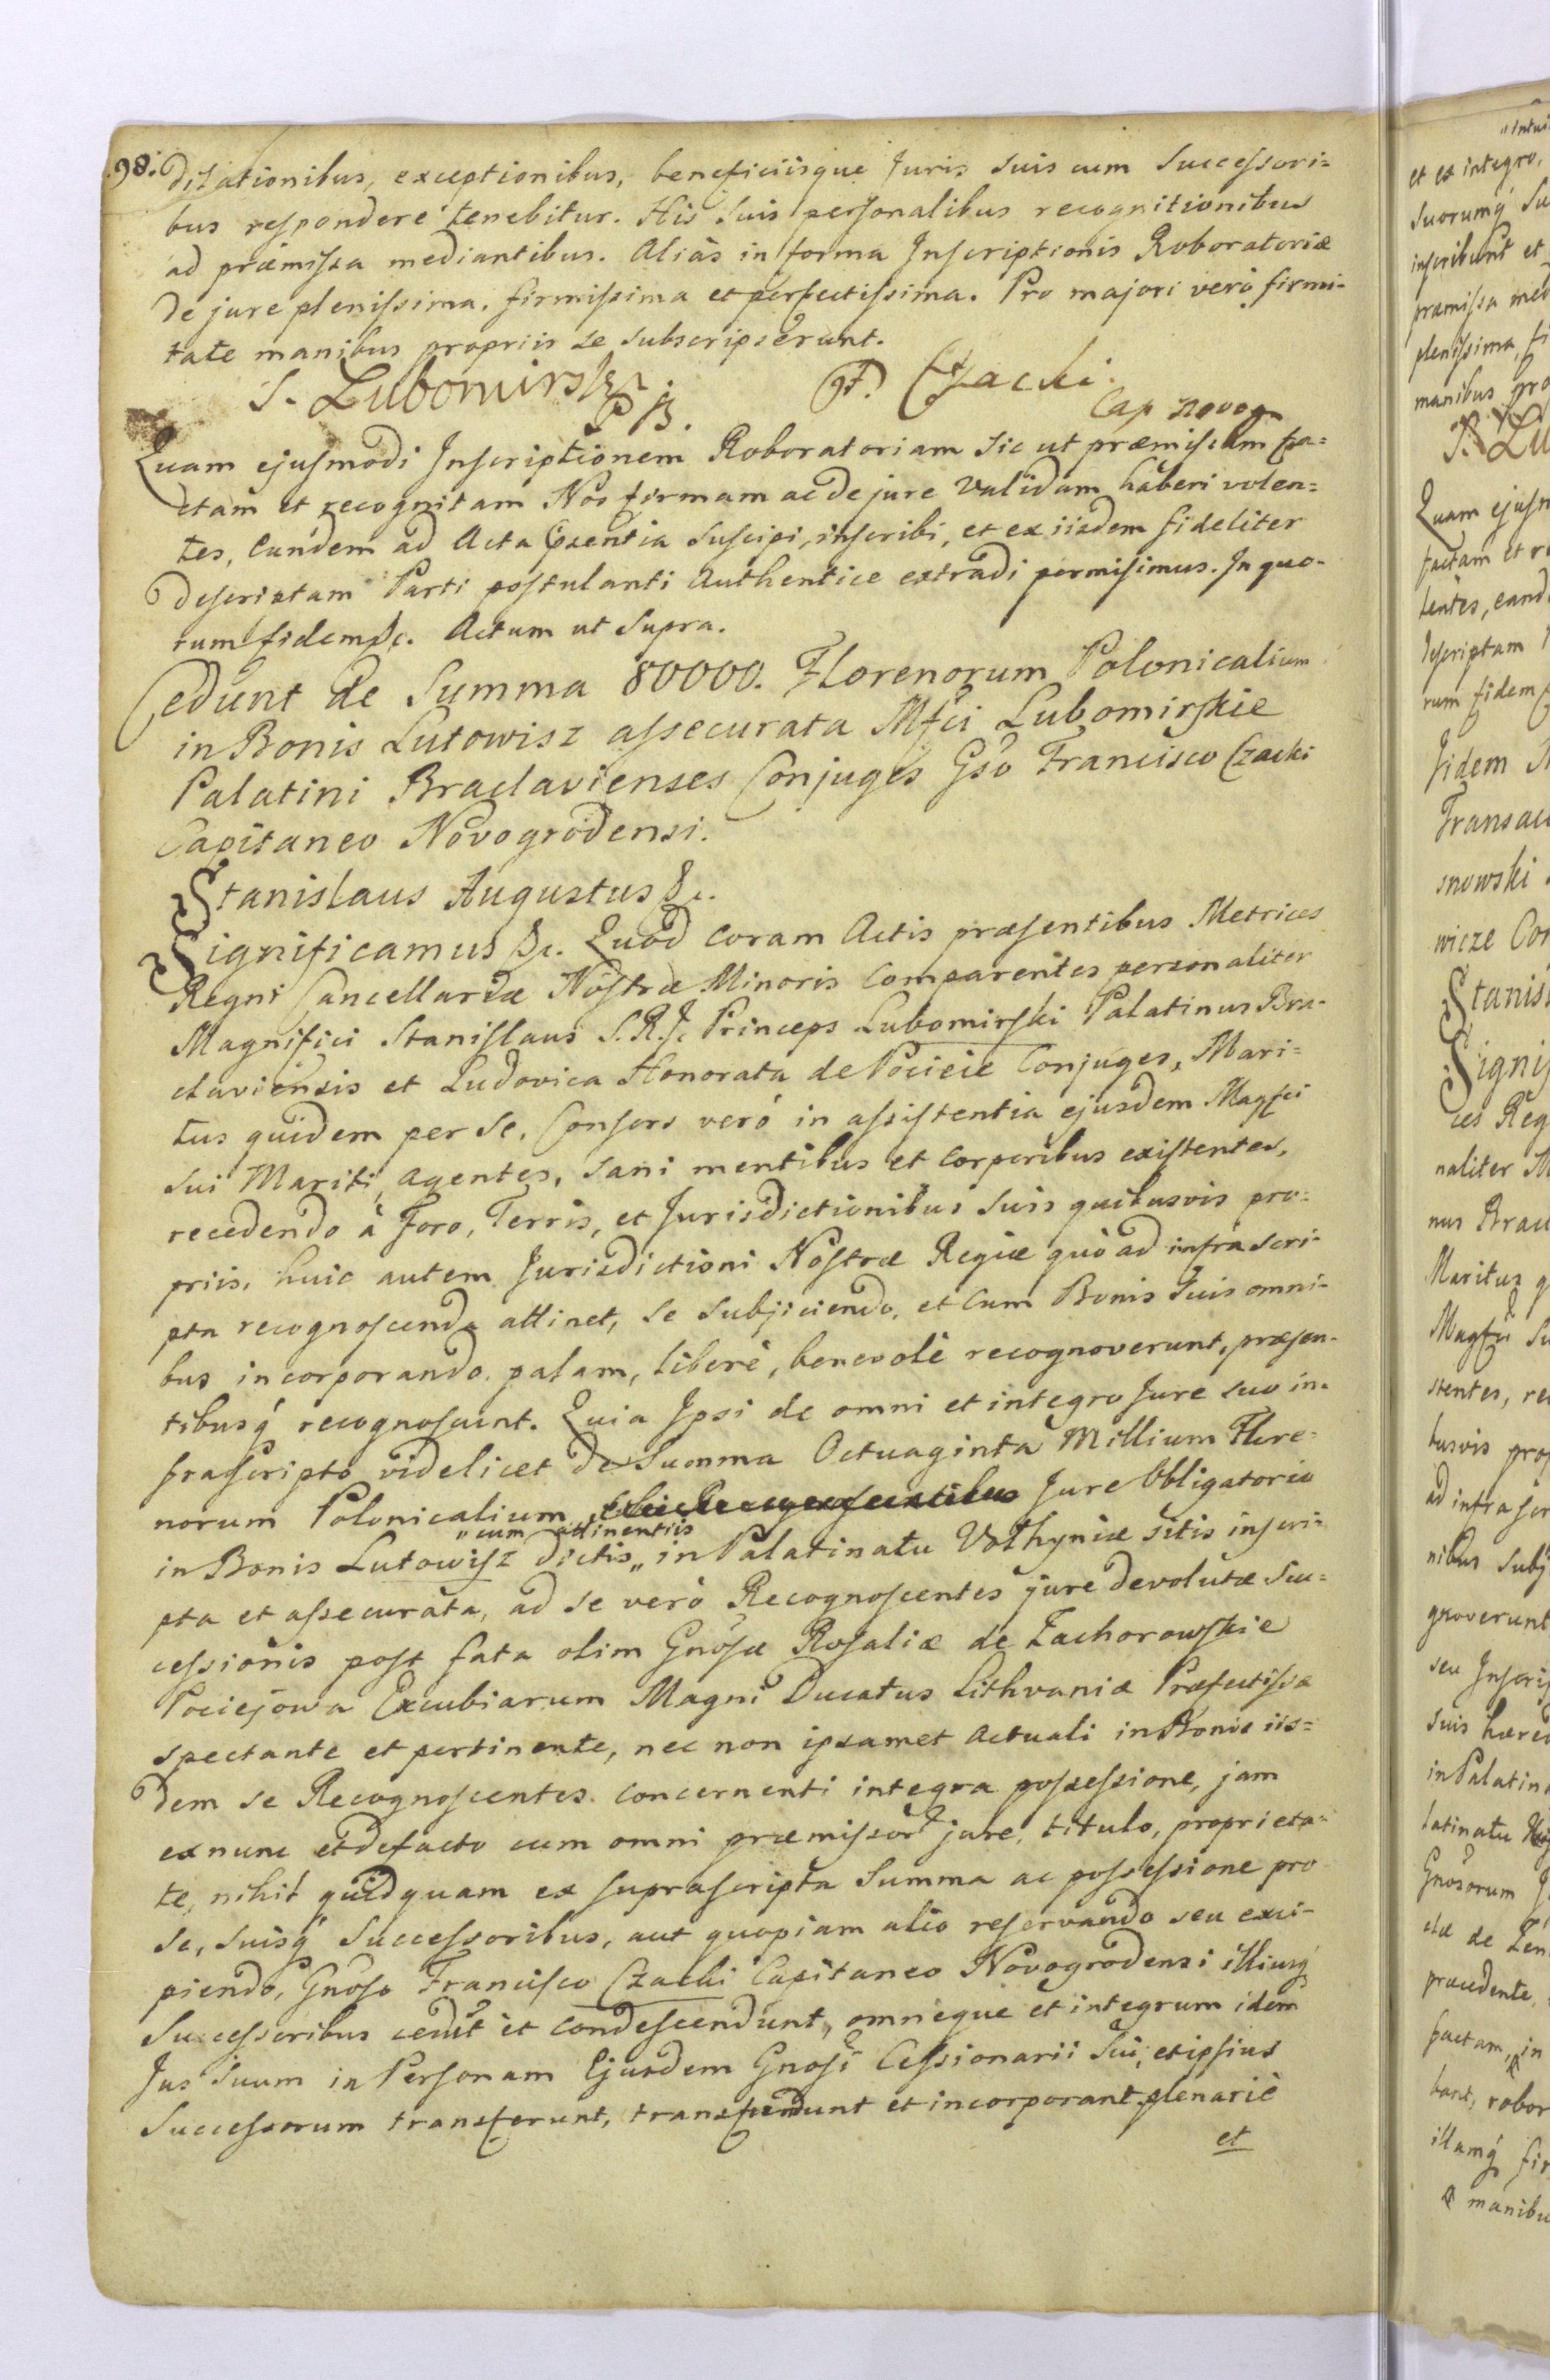 98. dilationibus, exceptionibus, beneficiisque Juris suis cum Successori=
bus respondere tenebitur. His suis personalibus recognitionibus
ad præmissa mediantibus. Aliàs in forma Inscriptionis Roboratoriæ
de jure plenissima, firmissima et perfectissima. Pro majori verò firmi-
tate manibus propriis se subscripserunt.
S. Lubomirski F. Czacki
P B. Cap novog
Quam ejusmodi Inscriptionem Roboratoriam sic ut præmissum fa=
ctam et recognitam Nos firmam ac de jure validam haberi volen=
tes, Eandem ad Acta Præntia Suscipi, inscribi, et ex iisdem fideliter
descriptam Parti postulanti Authentice extradi permisimus. In quo-
rum fidem &c. Actum ut Supra.
Cedunt de Summa 80000. Florenorum Polonicalium
in Bonis Lutowisz assecurata Mfci Lubomirskie
Palatini Braclavienses Conjuges Gso Francisco Czacki
Capitaneo Novogrodensi.
Stanislaus Augustus &c.
Significamus &c. Quod Coram Actis præsentibus Metrices
Regni Cancellariæ Nostræ Minoris Comparentes personaliter
Magnifici Stanislaus S.R.J. Princeps Lubomirski Palatinus Bra-
claviensis et Ludovica Honorata de Pocieie Conjuges, Mari=
tus quidem per se, Consors verò in assistentia ejusdem Magfci
sui Mariti, agentes, sani mentibus et Corporibus existentes,
recedendo à Foro, Terris, et Jurisdictionibus suis quibusvis pro=
priis, huic autem Jurisdictioni Nostræ Regiæ quò ad infrascri-
pta recognoscenda attinet, se Subjiciendo, et Cum Bonis suis omni-
bus incorporando, palam, liberè, benevolè recognoverunt, præsen-
tibusq́ recognoscunt. Quia Ipsi de omni et integro Jure suo in-
frascripto videlicet de Summa Octuaginta Millium Flore=
norum Polonicalium Jure Obligatorio
in Bonis Lutowisz dictis „cum attinentiis„ in Palatinatu Volhyniæ sitis inscri-
pta et assecurata, ad se verò Recognoscentes jure devolutæ Suc=
cessionis post fata olim Gnosæ Rosaliæ de Zachorowskie
Pociejowa Excubiarum Magni Ducatus Lithvaniæ Præfectissæ
spectante et pertinente, nec non ipsamet Actuali in Bonis iis=
dem se Recognoscentes concernenti integra possessione, jam
ex nunc et de facto cum omni præmissor jure, titulo, proprieta=
te, nihil quidquam ex suprascripta Summa ac possessione pro
se, suisq́ Successoribus, aut quopiam alio reservando seu exci-
piendo, Gnoso Francisco Czacki Capitaneo Novogrodensi illiusq́
Successoribus cedunt et condescendunt, omneque et integrum idem
Jus Suum in Personam Ejusdem Gnosi Cessionarii Sui, et ipsius
Successorum transferunt, transfundunt et incorporant plenariè
et
„Intui
et ex integro,
suorumq́ Su
inscribunt et
præmissa med
plenissima, fi
manibus pro
S. Lu
Quam ejusm
factam et re
lentes, eand
descriptam
rum fidem
Fidem
Transac
snowski
wicze Con
Stanis
Signif
ces Reg
naliter M
nus Brac
Maritus q
Magfci Su
stentes, re
busvis prop
ad infrascr
nibus Subj
gnoverunt
seu Inscrip
suis hæred
in Palatin
latinatu
Gnosorum
de Zen
præcedente,
factam, in
bant, robor
illamq́ fir
manibu